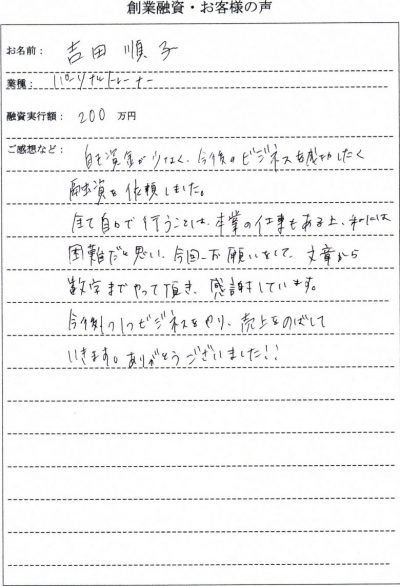 創業融資・お客様の声
お名前： 吉田 順子
業種： パーソナルトレーナー
融資実行額： 200 万円
ご感想など： 自己資金が少なく、今後のビジネスを成功したく
融資を依頼しました。
全て自分で行うことは、本業の仕事もある上、私には
困難だと思い、今回お願いをして、文章から
数字までやって頂き、感謝しています。
今後 ビジネスをやり、売上をのばして
いきます。ありがとうございました!!